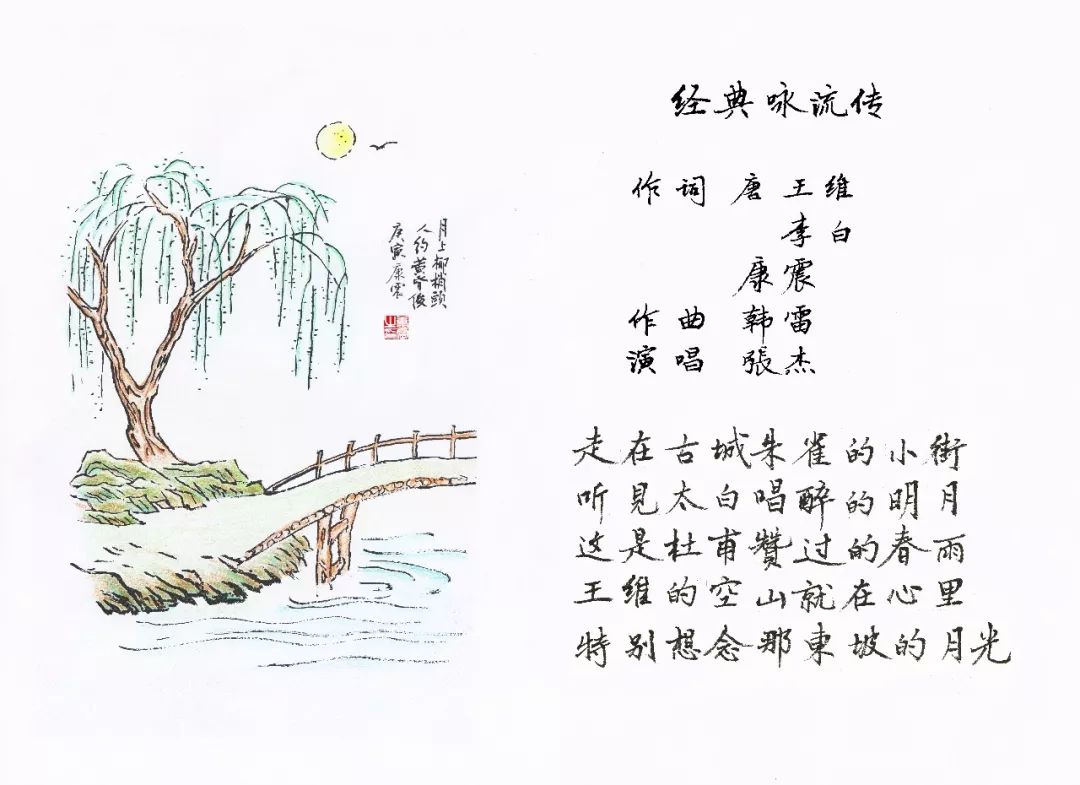 经典咏流传
作词 唐 王维
李白
康震
作曲 韩雷
演唱 張杰
走在古城朱雀的小街
听见太白唱醉的明月
这是杜甫赞过的春雨
王维的空山就在心里
特别想念那東坡的月光
月上柳梢頭
人约黄昏後
庚寅康震